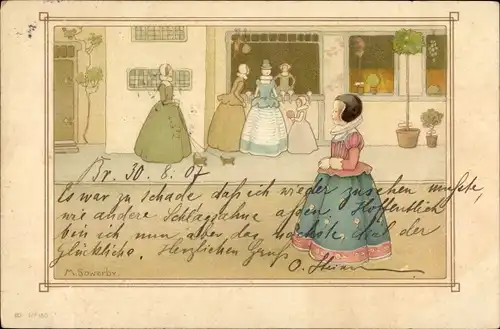 Br. 30. 8. 07
Es war zu schade daß ich wieder zusehen mußte,
wie andere Schlagsahne aßen. Hoffentlich
bin ich nun aber das nächste mal der
Glückliche. Herzlichen Gruß
O.
M. Sowerby.